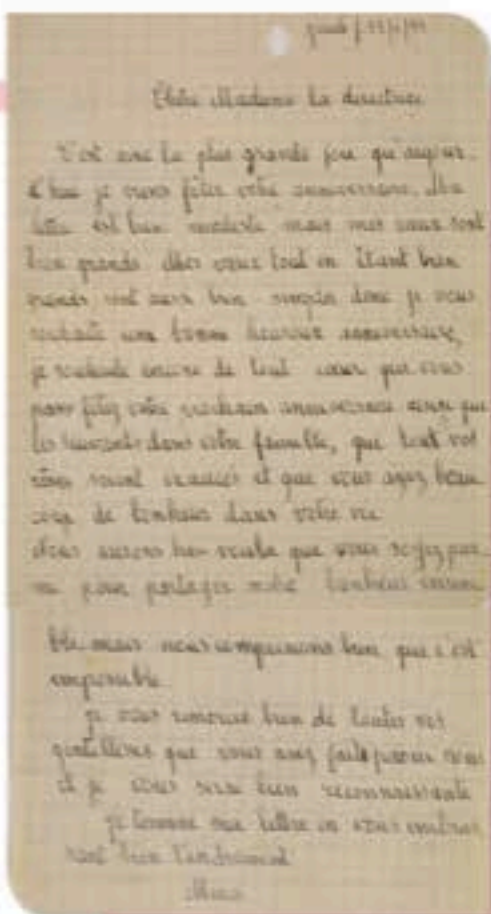 Chère Madame la directrice
C'est avec la plus grande joie qu'aujour-
d'hui je viens fêter votre anniversaire. Ma
lettre est bien modeste mais mes vœux sont
bien grands. Mes vœux tout en étant bien
grands sont aussi bien simples donc je vous
souhaite une bonne heureux anniversaire,
je souhaite encore de tout cœur que vous
fêtez votre prochain anniversaire ainsi que
les suivants dans votre famille, que tout vos
rêves soient exaucés et que vous ayez beau
coup de bonheur dans votre vie
Nous aurions bien voulu que vous soyez par
mi pour partager notre bonheur ensem
ble mais nous comprenons bien que c'est
impossible
je vous remercie bien de toutes vos
gentillesses que vous avez faites pour nous
et je vous serai bien reconnaissante
je termine ma lettre en vous embras
sant bien tendrement